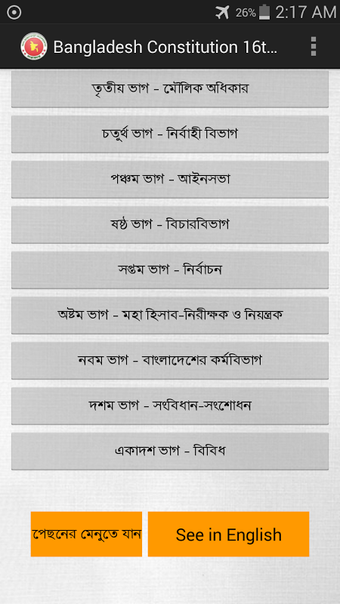 26% 2:17 AM
Bangladesh Constitution 16t...
তৃতীয় ভাগ - মৌলিক অধিকার
চতুর্থ ভাগ - নির্বাহী বিভাগ
পঞ্চম ভাগ - আইনসভা
ষষ্ঠ ভাগ - বিচারবিভাগ
সপ্তম ভাগ - নির্বাচন
অষ্টম ভাগ - মহা হিসাব-নিরীক্ষক ও নিয়ন্ত্রক
নবম ভাগ - বাংলাদেশের কর্মবিভাগ
দশম ভাগ - সংবিধান-সংশোধন
একাদশ ভাগ - বিবিধ
পেছনের মেনুতে যান See in English